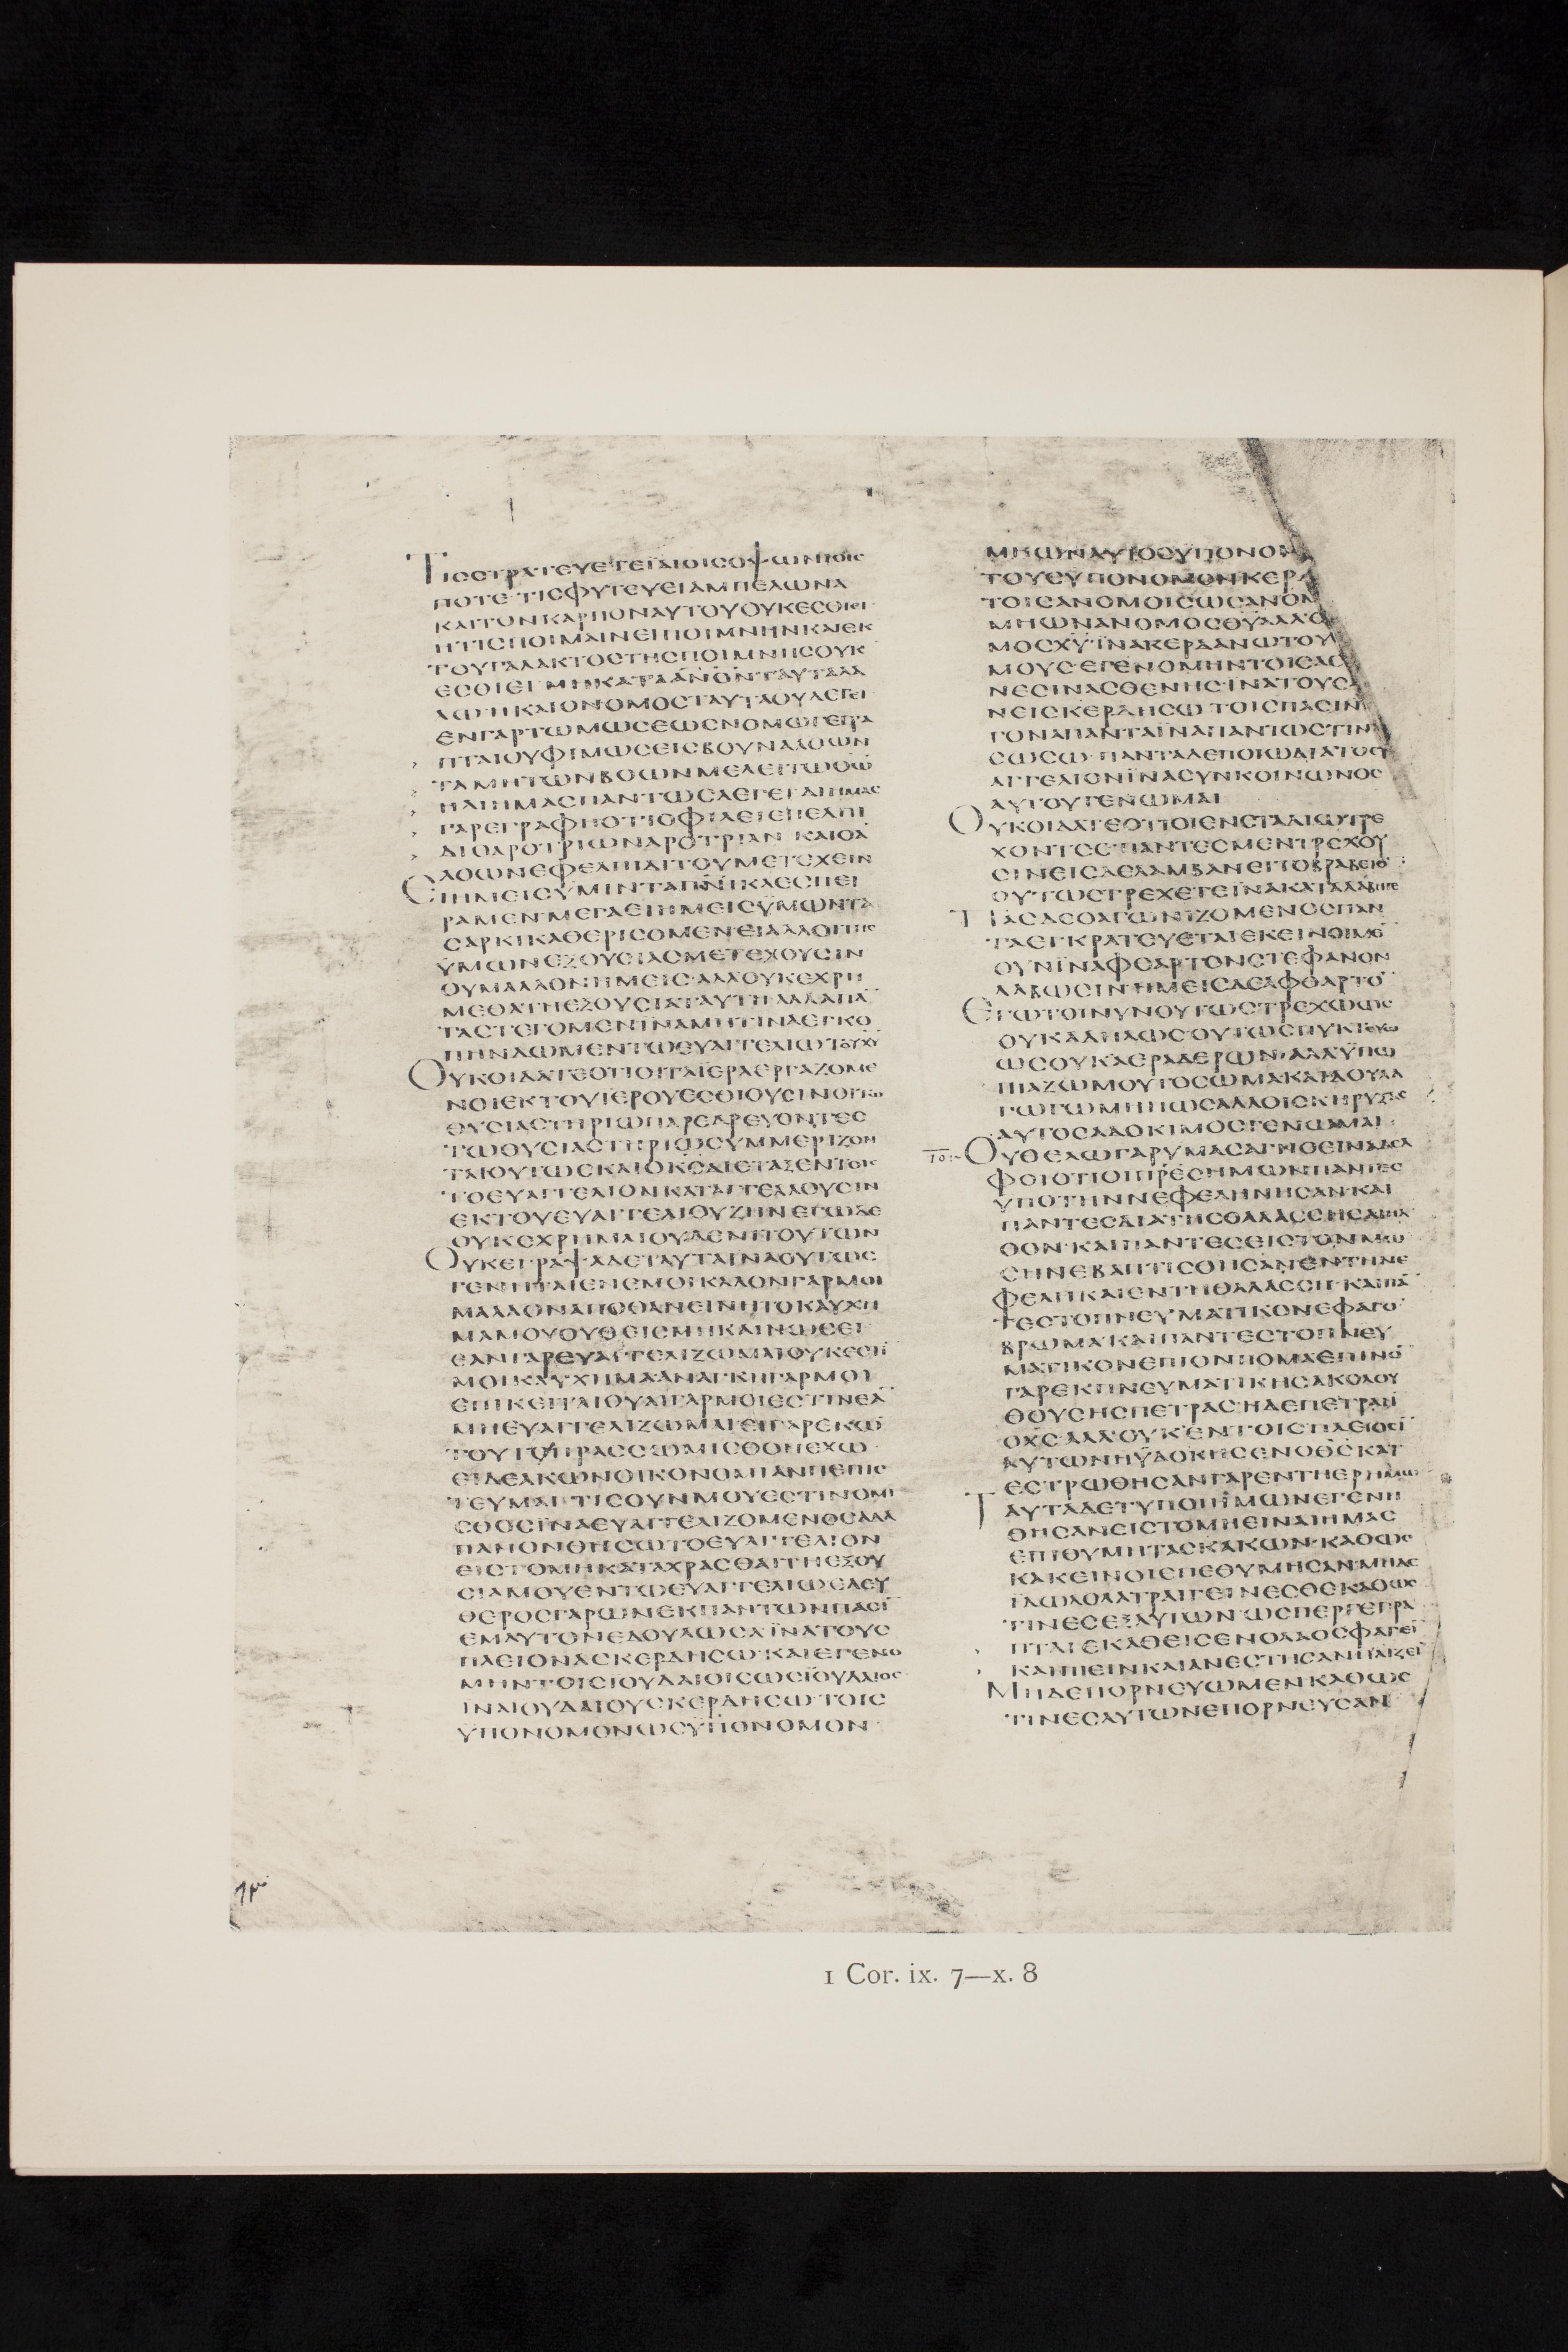 ΤΙϹϹΤΡΑΤΕΥΕΤΕΪΔΙΟΙϹΟΨΩΝΙΟΙϹ
ΠΟΤΕ·ΤΙϹΦΥΤΕΥΕΙΑΜΠΕΛΩΝΑ
ΚΑΙΤΟΝΚΑΡΠΟΝΑΥΤΟΥΟΥΚΕϹΘΙΕΙ·
ΗΤΙϹΠΟΙΜΑΙΝΕΙΠΟΙΜΝΗΝΚΑΙΕΚ
ΤΟΥΓΑΛΑΚΤΟϹΤΗϹΠΟΙΜΝΗϹΟΥΚ
ΕϹΘΙΕΙ·ΜΗΚΑΤΑΑΝΟΝΤΑΥΤΑΛΑ
ΛΩ·ΗΚΑΙΟΝΟΜΟϹΤΑΥΤΑΟΥΛΕΓΕΙ
ΕΝΓΑΡΤΩΜΩϹΕΩϹΝΟΜΩΓΕΓΡΑ
ΠΤΑΙΟΥΦΙΜΩϹΕΙϹΒΟΥΝΑΛΟΩΝ
ΤΑΜΗΤΩΝΒΟΩΝΜΕΛΕΙΤΩΘΩ
ΗΔΙΗΜΑϹΠΑΝΤΩϹΛΕΓΕΙ·ΔΙΗΜΑϹ
ΓΑΡΕΓΡΑΦΗΟΤΙΟΦΙΛΕΙΕΠΕΛΠΙ
ΔΙΟΑΡΟΤΡΙΩΝΑΡΟΤΡΙΑΝ·ΚΑΙΟΑ
ΛΟΩΝΕΦΕΛΠΙΔΙΤΟΥΜΕΤΕΧΕΙΝ
ΕΙΗΜΕΙϹΫΜΙΝΤΑΠΝΙΚΑΕϹΠΕΙ
ΡΑΜΕΝ·ΜΕΓΑΕΙΗΜΕΙϹΫΜΩΝΤΑ
ϹΑΡΚΙΚΑΘΕΡΙϹΟΜΕΝ·ΕΙΑΛΛΟΙΤΗϹ
ΫΜΩΝΕΞΟΥϹΙΑϹΜΕΤΕΧΟΥϹΙΝ
ΟΥΜΑΛΛΟΝΗΜΕΙϹ·ΑΛΛΟΥΚΕΧΡΗ
ΜΕΘΑΤΗΕΞΟΥϹΙΑΤΑΥΤΗ·ΑΛΛΑΠΑ
ΤΑϹΤΕΓΟΜΕΝΪΝΑΜΗΤΙΝΑΕΓΚΟ
ΠΗΝΔΩΜΕΝΤΩΕΥΑΓΓΕΛΙΩΤΟΥΧΥ
ΟΥΚΟΙΔΑΤΕΟΤΙΟΙΤΑΪΕΡΑΕΡΓΑΖΟΜΕ
ΝΟΙΕΚΤΟΥΪΕΡΟΥΕϹΘΙΟΥϹΙΝΟΙΤΩ
ΘΥϹΙΑϹΤΗΡΙΩΠΑΡΕΔΡΕΥΟΝΤΕϹ
ΤΩΘΥϹΙΑϹΤΗΡΙΩϹΥΜΜΕΡΙΖΟΝ
ΤΑΙΟΥΤΩϹΚΑΙΟΚϹΔΙΕΤΑΞΕΝΤΟΙϹ
ΤΟΕΥΑΓΓΕΛΙΟΝΚΑΤΑΓΓΕΛΛΟΥϹΙΝ
ΕΚΤΟΥΕΥΑΓΓΕΛΙΟΥΖΗΝΕΓΩΔΕ
ΟΥΚΕΧΡΗΜΑΙΟΥΔΕΝΙΤΟΥΤΩΝ
ΟΥΚΕΓΡΑΨΑΔΕΤΑΥΤΑΪΝΑΟΥΤΩϹ
ΓΕΝΗΤΑΙΕΝΕΜΟΙΚΑΛΟΝΓΑΡΜΟΙ
ΜΑΛΛΟΝΑΠΟΘΑΝΕΙΝΗΤΟΚΑΥΧΗ
ΜΑΜΟΥΟΥΘΕΙϹΜΗΚΑΙΝΩϹΕΙ
ΕΑΝΓΑΡΕΥΑΓΓΕΛΙΖΩΜΑΙΟΥΚΕϹΤΙ
ΜΟΙΚΑΥΧΗΜΑΑΝΑΓΚΗΓΑΡΜΟΙ
ΕΠΙΚΕΙΤΑΙΟΥΑΙΓΑΡΜΟΙΕϹΤΙΝΕΑ
ΜΗΕΥΑΓΓΕΛΙΖΩΜΑΙ·ΕΙΓΑΡΕΚΩ
ΤΟΥΤΟΠΡΑϹϹΩΜΙϹΘΟΝΕΧΩ·
ΕΙΔΕΑΚΩΝΟΙΚΟΝΟΜΙΑΝΠΕΠΙϹ
ΤΕΥΜΑΙ·ΤΙϹΟΥΝΜΟΥΕϹΤΙΝΟΜΙ
ϹΘΟϹΪΝΑΕΥΑΓΓΕΛΙΖΟΜΕΝΟϹΑΔΑ
ΠΑΝΟΝΘΗϹΩΤΟΕΥΑΓΓΕΛΙΟΝ
ΕΙϹΤΟΜΗΚΑΤΑΧΡΑϹΘΑΙΤΗΕΞΟΥ
ϹΙΑΜΟΥΕΝΤΩΕΥΑΓΓΕΛΙΩΕΛΕΥ
ΘΕΡΟϹΓΑΡΩΝΕΚΠΑΝΤΩΝΠΑϹΙ
ΕΜΑΥΤΟΝΕΔΟΥΛΩϹΑΪΝΑΤΟΥϹ
ΠΛΕΙΟΝΑϹΚΕΡΔΗϹΩ·ΚΑΙΕΓΕΝΟ
ΜΗΝΤΟΙϹΙΟΥΔΑΙΟΙϹΩϹΪΟΥΔΑΙΟϹ
ΪΝΑΙΟΥΔΑΙΟΥϹΚΕΡΔΗϹΩ·ΤΟΙϹ
ΫΠΟΝΟΜΟΝΩϹΫΠΟΝΟΜΟΝ·
ΜΗΩΝΑΥΤΟϹΥΠΟΝΟΜ
ΤΟΥϹΥΠΟΝΟΜΟΝΚΕΡΔ
ΤΟΙϹΑΝΟΜΟΙϹΩϹΑΝΟΜ
ΜΗΩΝΑΝΟΜΟϹΘΥΑΛΛΟ
ΜΟϹΧΥ·ΪΝΑΚΕΡΔΑΝΩΤΟΥ
ΜΟΥϹ·ΕΓΕΝΟΜΗΝΤΟΙϹΑϹ
ΝΕϹΙΝΑϹΘΕΝΗϹ·ΙΝΑΤΟΥϹΑ
ΝΕΙϹΚΕΡΔΗϹΩ·ΤΟΙϹΠΑϹΙΝ
ΓΟΝΑΠΑΝΤΑΪΝΑΠΑΝΤΩϹΤΙΝ
ϹΩϹΩ·ΠΑΝΤΑΔΕΠΟΙΩΔΙΑΤΟΕΥ
ΑΓΓΕΛΙΟΝΪΝΑϹΥΝΚΟΙΝΩΝΟϹ
ΑΥΤΟΥΓΕΝΩΜΑΙ
ΟΥΚΟΙΔΑΤΕΟΤΙΟΙΕΝϹΤΑΔΙΩΤΡΕ
ΧΟΝΤΕϹΠΑΝΤΕϹΜΕΝΤΡΕΧΟΥ
ϹΙΝΕΙϹΔΕΛΑΜΒΑΝΕΙΤΟΒΡΑΒΕΙΟ
ΟΥΤΩϹΤΡΕΧΕΤΕΪΝΑΚΑΤΑΛΑΒΗΤΕ
ΠΑϹΔΕΟΑΓΩΝΙΖΟΜΕΝΟϹΠΑΝ
ΤΑΕΓΚΡΑΤΕΥΕΤΑΙΕΚΕΙΝΟΙΜΕ
ΟΥΝΪΝΑΦΘΑΡΤΟΝϹΤΕΦΑΝΟΝ
ΛΑΒΩϹΙΝ·ΗΜΕΙϹΔΕΑΦΘΑΡΤΟ
ΕΓΩΤΟΙΝΥΝΟΥΤΩϹΤΡΕΧΩΩϹ
ΟΥΚΑΔΗΛΩϹΟΥΤΩϹΠΥΚΤΕΥΩ
ΩϹΟΥΚΑΕΡΑΔΕΡΩΝ·ΑΛΛΫΠΩ
ΠΙΑΖΩΜΟΥΤΟϹΩΜΑΚΑΙΔΟΥΛΑ
ΓΩΓΩΜΗΠΩϹΑΛΛΟΙϹΚΗΡΥΞΑϹ
ΑΥΤΟϹΑΔΟΚΙΜΟϹΓΕΝΩΜΑΙ·
ΟΥΘΕΛΩΓΑΡΥΜΑϹΑΓΝΟΕΙΝΑΔΕΛ
ΦΟΙΟΤΙΟΙΠΡΕϹΗΜΩΝΠΑΝΤΕϹ
ΥΠΟΤΗΝΝΕΦΕΛΗΝΗϹΑΝ·ΚΑΙ
ΠΑΝΤΕϹΔΙΑΤΗϹΘΑΛΑϹϹΗϹΔΙΗΛ
ΘΟΝ·ΚΑΙΠΑΝΤΕϹΕΙϹΤΟΝΜΩ
ϹΗΝΕΒΑΠΤΙϹΘΗϹΑΝΕΝΤΗΝΕ
ΦΕΛΗΚΑΙΕΝΤΗΘΑΛΑϹϹΗ·ΚΑΙΠΑ
ΤΕϹΤΟΠΝΕΥΜΑΤΙΚΟΝΕΦΑΓΟ
ΒΡΩΜΑ·ΚΑΙΠΑΝΤΕϹΤΟΠΝΕΥ
ΜΑΤΙΚΟΝΕΠΙΟΝΠΟΜΑΕΠΙΝΟ
ΓΑΡΕΚΠΝΕΥΜΑΤΙΚΗϹΑΚΟΛΟΥ
ΘΟΥϹΗϹΠΕΤΡΑϹ·ΗΔΕΠΕΤΡΑΗ
ΟΧϹ·ΑΛΛΟΥΚΕΝΤΟΙϹΠΛΕΙΟϹΙ
ΑΥΤΩΝΗΥΔΟΚΗϹΕΝΟΘϹΚΑΤ
ΕϹΤΡΩΘΗϹΑΝΓΑΡΕΝΤΗΕΡΗΜΩ
ΤΑΥΤΑΔΕΤΥΠΟΙΗΜΩΝΕΓΕΝΗ
ΘΗϹΑΝΕΙϹΤΟΜΗΕΙΝΑΙΗΜΑϹ
ΕΠΙΘΥΜΗΤΑϹΚΑΚΩΝ·ΚΑΘΩϹ
ΚΑΚΕΙΝΟΙΕΠΕΘΥΜΗϹΑΝ·ΜΗΔΕ
ΪΔΩΛΟΛΑΤΡΑΙΓΕΙΝΕϹΘΕΚΑΘΩϹ
ΤΙΝΕϹΕΞΑΥΤΩΝ·ΩϹΠΕΡΓΕΓΡΑ
ΠΤΑΙΕΚΑΘΕΙϹΕΝΟΛΑΟϹΦΑΓΕΙ
ΚΑΙΠΕΙΝΚΑΙΑΝΕϹΤΗϹΑΝΠΑΙΖΕΙ
ΜΗΔΕΠΟΡΝΕΥΩΜΕΝΚΑΘΩϹ
ΤΙΝΕϹΑΥΤΩΝΕΠΟΡΝΕΥϹΑΝ
1 Cor. ix. 7—x. 8